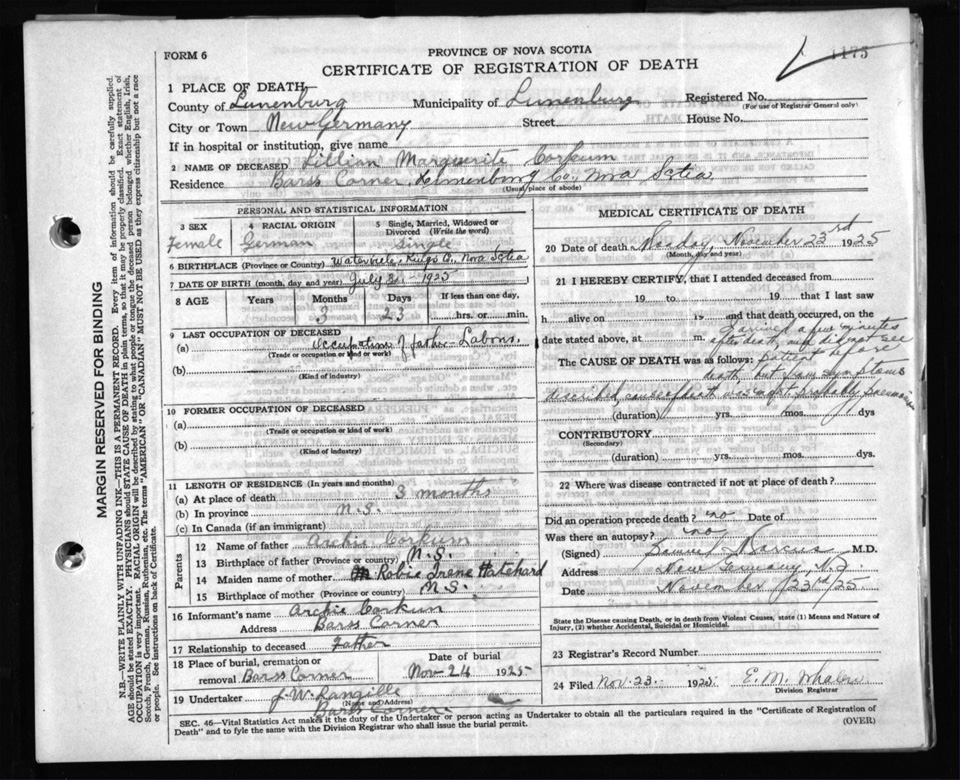 1175
FORM 6
PROVINCE OF NOVA SCOTIA
CERTIFICATE OF REGISTRATION OF DEATH
1 PLACE OF DEATH
County of Lunenburg Municipality of Lunenburg Registered No.
(For use of Registrar General only)
City or Town New Germany Street House No.
If in hospital or institution, give name
2 NAME OF DECEASED Lillian Marguerite Corkum
Residence Barss Corner, Lunenburg Co., Nova Scotia
(Usual place of abode)
PERSONAL AND STATISTICAL INFORMATION
3 SEX Female
4 RACIAL ORIGIN German
5 Single, Married, Widowed or Divorced (Write the word) Single
6 BIRTHPLACE (Province or Country) Waterville, Kings Co., Nova Scotia
7 DATE OF BIRTH (month, day, and year) July 1925
8 AGE Years Months Days If less than one day,
3 23 hrs. or min.
9 LAST OCCUPATION OF DECEASED
(a) Occupation of father - Labour.
(Trade or occupation or kind of work)
(b)
(Kind of industry)
10 FORMER OCCUPATION OF DECEASED
(a)
(Trade or occupation or kind of work)
(b)
(Kind of industry)
11 LENGTH OF RESIDENCE (In years and months)
(a) At place of death 3 months
(b) In province N.S.
(c) In Canada (if an immigrant)
Parents
12 Name of father Archie Corkum
13 Birthplace of father (Province or country) N.S.
14 Maiden name of mother Robie Irene Hatchard
15 Birthplace of mother (Province or country) N.S.
16 Informant's name Archie Corkum
Address Barss Corner
17 Relationship to deceased Father
18 Place of burial, cremation or removal Barss Corner Date of burial Nov-24 1925
19 Undertaker J. W. Langille
(Name and Address)
Barss Corner
MEDICAL CERTIFICATE OF DEATH
20 Date of death Monday, November 23rd 1925
(Month, day and year)
21 I HEREBY CERTIFY, that I attended deceased from
19 to 19 that I last saw
h alive on 19 and that death occurred, on the
date stated above, at m. I arrived a few minutes
after death, and did not see
The CAUSE OF DEATH was as follows: patient before
death, but from symptoms
described cause of death was probably Pneumonia
(duration) yrs. mos. dys
CONTRIBUTORY
(Secondary)
(duration) yrs. mos. dys.
22 Where was disease contracted if not at place of death?
Did an operation precede death? no Date of
Was there an autopsy? no
(Signed) Samuel Marcus M.D.
Address New Germany, N.S.
Date November 23rd/25
State the Disease causing Death, or in death from Violent Causes, state (1) Means and Nature of Injury, (2) whether Accidental, Suicidal or Homicidal.
23 Registrar's Record Number
24 Filed Nov. 23. 1925 E. M. Whalen
Division Registrar
SEC. 46—Vital Statistics Act makes it the duty of the Undertaker or person acting as Undertaker to obtain all the particulars required in the "Certificate of Registration of
Death" and to fyle the same with the Division Registrar who shall issue the burial permit.
(OVER)
MARGIN RESERVED FOR BINDING
N.B.—WRITE PLAINLY WITH UNFADING INK—THIS IS A PERMANENT RECORD. Every item of information should be carefully supplied.
AGE should be stated EXACTLY. PHYSICIANS should STATE CAUSE OF DEATH in plain terms, so that it may be properly classified. Exact statement of
OCCUPATION is very important. RACIAL ORIGIN will be described by stating to what people or tongue the deceased person belonged whether English, Irish,
Scotch, French, German, Russian, Ruthenian, etc. The terms "AMERICAN" OR "CANADIAN" MUST NOT BE USED as they express citizenship but not a race
or people. See instructions on back of Certificate.